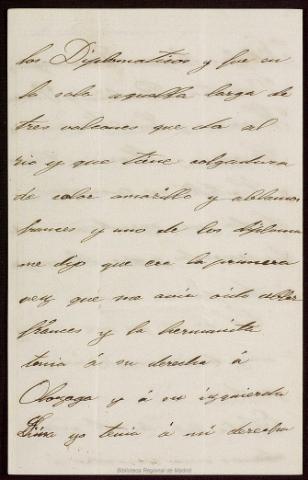 los Diplomaticos y fue en
la sala aquella larga de
tres valcones que da al
rio y que tiene colgadura
de color amarillo y ablamos
frances y uno de los diploma
me dijo que era la primera
vez que me avia oido ablar
frances y la hermanita
tenia á su derecha á
Olozaga y á su izquierda
yo tenia á mi derecha
Biblioteca Regional de Madrid